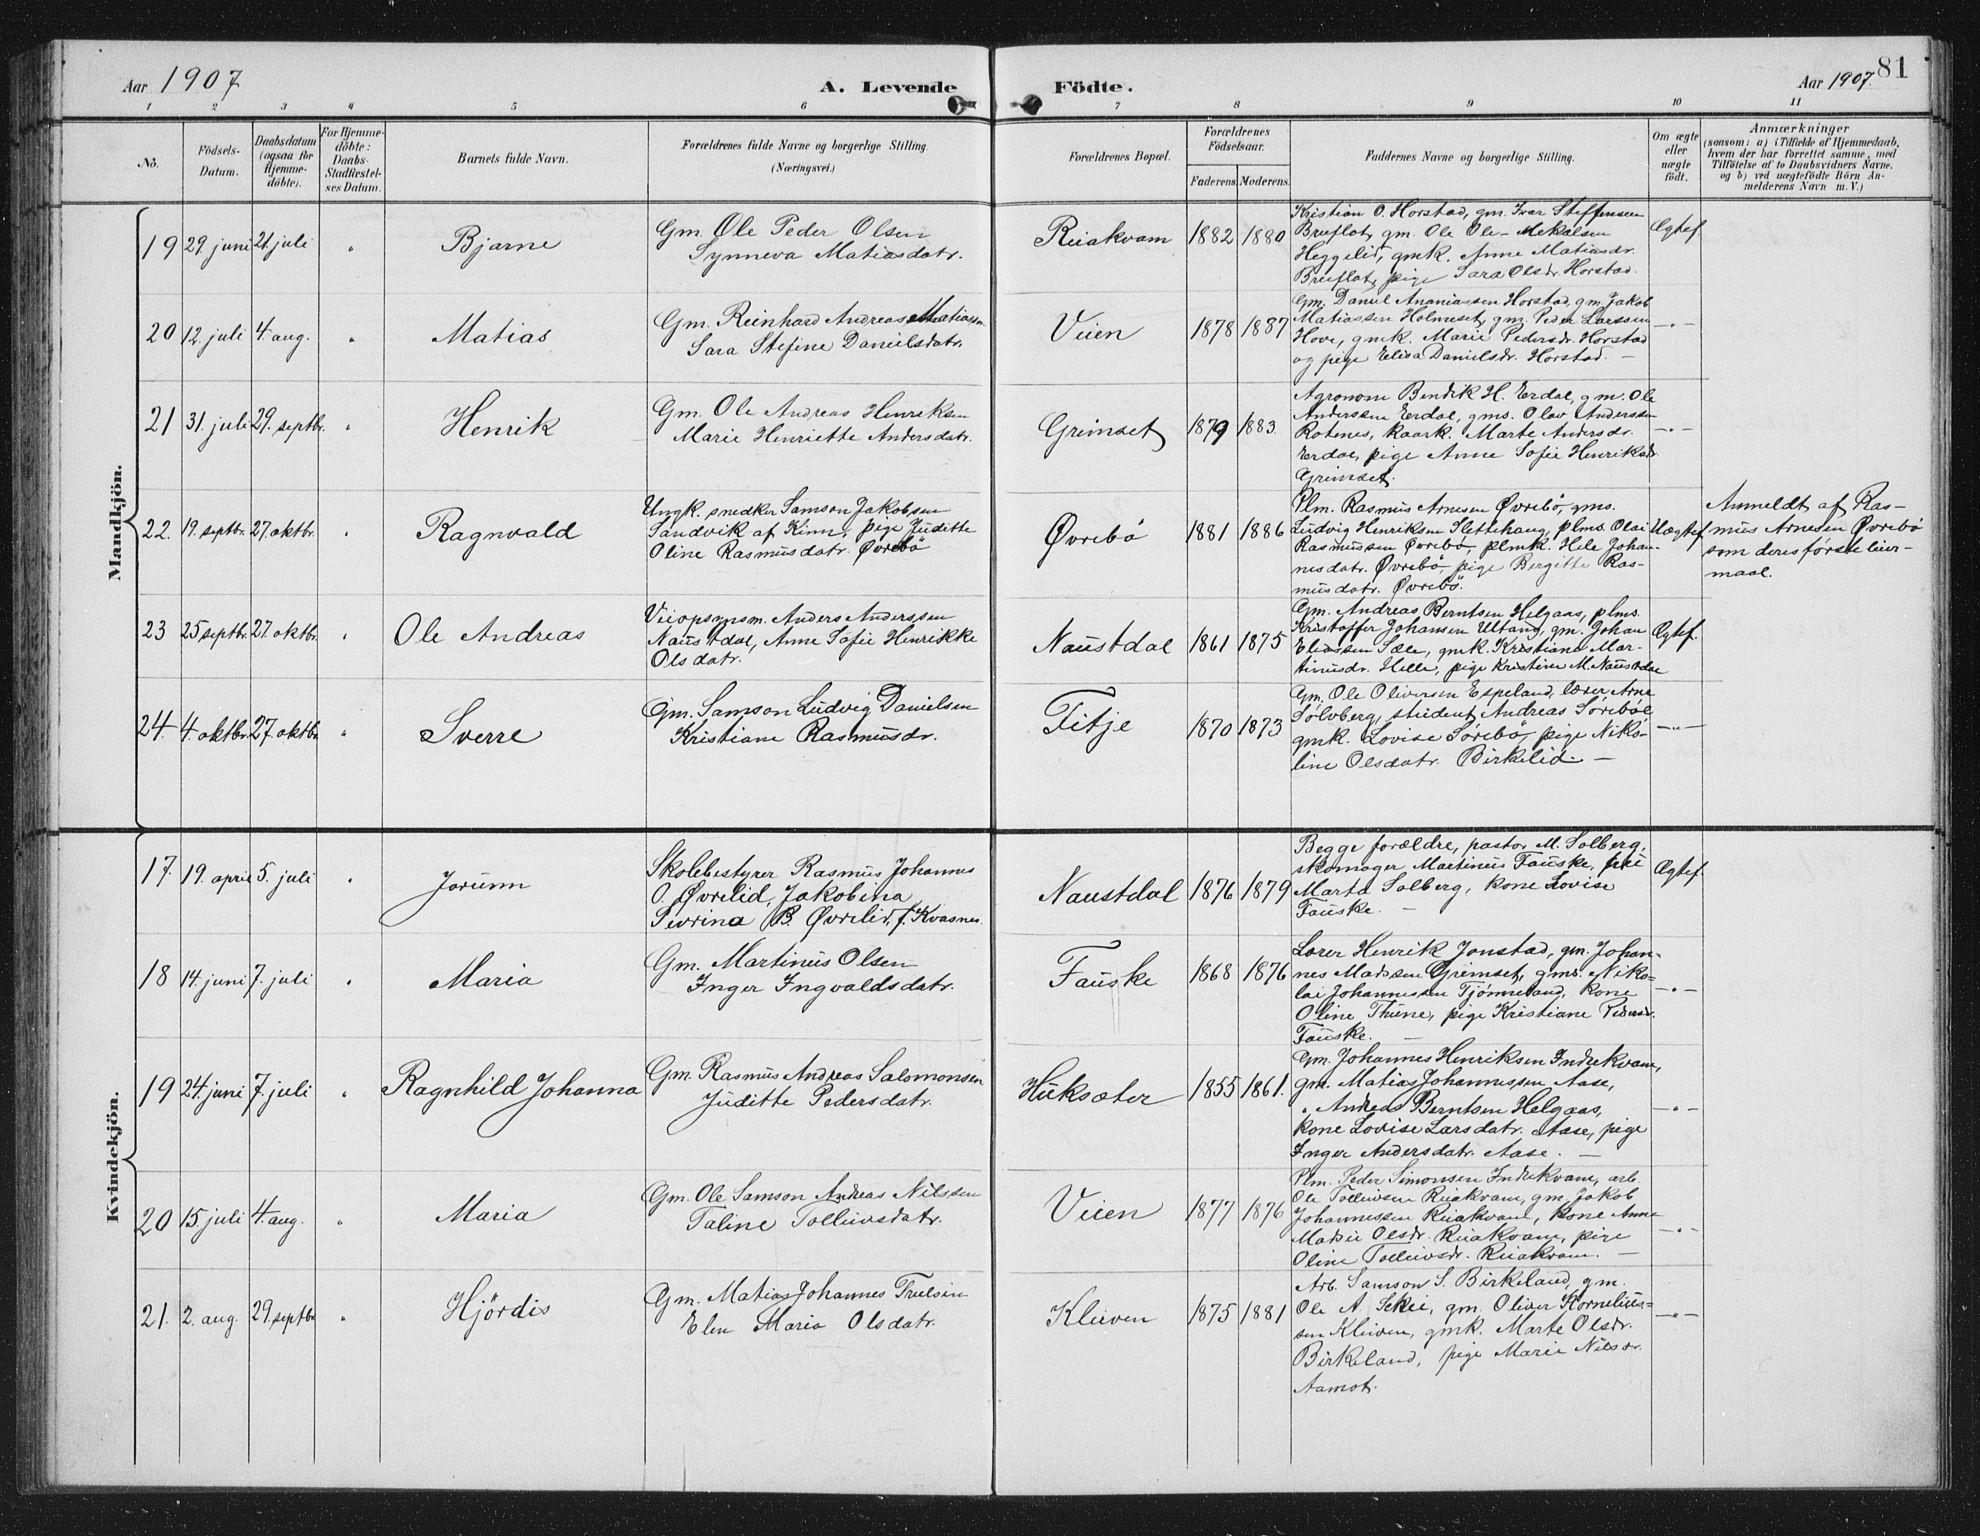 Aar 1907 A. Levende Födte. Aar 1907. 81
1 2 3 4 5 6 7 8 9 10 11
No. Födsels-Datum. Daabsdatum (ogsaa for Hjemme-döbte). For Hjemme-döbte: Daabs-Stadfæstel-ses Datum. Barnets fulde Navn. Forældrenes fulde Navne og borgerlige Stilling. (Næringsvei.) Forældrenes Bopæl. Forældrenes Födselsaar. Faderens. Moderens. Faddernes Navne og borgerlige Stilling. Om ægte eller uægte födt. Anmærkninger (saasom: a) i Tilfælde af Hjemmedaab, hvem der har forrettet samme, med Tilföielse af to Daabsvidners Navne, og b) ved uægtefödte Börn An-melderens Navn m. V.)
Mandkjön.
19 29 juni 21. juli " Bjarne
Gm. Ole Peder Olsen
Synneva Matiasdatr.
Ruakvam 1882 1880
Kristian O. Horstad, gm. Ivar Steffensen
Bruflot, gm. Ole Ole- Mekalsen
Heggelid, gmk. Anne Matiasdr.
Bruflot, pige Sara Olsdr. Horstad.
Ægtef.
20 12. juli 4. aug. " Matias
Gm. Reinhard Andreas Matiassen
Sara Stefine Danielsdatr.
Veien 1878 1887
Gm. Daniel Ananiassen Horstad, gm. Jakob
Matiassen Holmeset, gm. Peder Larssen
Hove, gmk. Marie Pedersdr. Horstad
og pige Elisa Danielsdr. Horstad. —
—"—
21 31. juli 29. septbr. " Henrik
Gm. Ole Andreas Henriksen
Marie Henriette Andersdatr.
Grimset 1879 1883.
Agronom Bendik H. Erdal, gm. Ole
Anderssen Erdal, gms. Olav Anderssen
Rotenes, kaark. Marte Andersdr.
Erdal, pige Anne Sofie Henriksdr.
Grimset.
—"—
22. 19. septbr. 27. oktbr. " Ragnvald
Ungk. snedker Samson Jakobsen
Sandvik af Kinn, pige Juditte
Oline Rasmusdatr. Øvrebö
Øvrebö 1881 1886
Plm. Rasmus Arnesen Øvrebö, gms.
Ludvig Henriksen Slettehaug, plms. Olai
Rasmussen Øvrebö, plmk. Hele Johan-
nesdatr. Øvrebö, pige Bergitte Ras-
musdatr. Øvrebö.
Uægtef.
Anmeldt af Ras-
mus Arnesen Øvrebö
som deres første leier-
maal.
23 25 septbr. 27. oktbr. " Ole Andreas
Veiopsynsm. Anders Anderssen
Naustdal, Anne Sofie Henrikke
Olsdatr.
Naustdal 1861 1875
Gm. Andreas Berntsen Helgaas, plms.
Kristoffer Johansen Ultang, gm. Johan
Eliassen Sæle, gmk. Kristiane Mar-
tinusdr. Helle, pige Kristine M. Naustdal
Ægtef.
24. 4. oktbr. 27. oktbr. " Sverre
Gm. Samson Ludvig Danielsen
Kristiane Rasmusdr.
Fitje 1870 1873
Gm. Ole Oliversen Espeland, lærer Arne
Sølvberg, student Andreas Sørebøe
gmk. Lovise Sørebø, pige Niko-
line Olsdatr. Birkelid. —
—"—
Kvindekjön.
17. 19. april 5. juli " Jorunn
Skolebestyrer Rasmus Johannes
O. Øvrelid, Jakobina
Sevrina B. Øvrelid, f. Kvasnes.
Naustdal 1876 1879
Begge forældre, pastor M. Solberg,
skomager Martinus Fauske, frue
Marta Solberg, kone Lovise
Fauske. —
Ægtef.
18 14. juni 7. juli " Maria
Gm. Martinus Olsen
Inger Ingvaldsdatr.
Fauske 1868 1876
Lærer Henrik Jonstad, gm. Johan-
nes Madssen Grimset, gms. Niko-
lai Johannessen Tjønneland, kone
Oline Thune, pige Kristiane Pedersdr.
Fauske. —
—"—
19 24. juni 7. juli " Ragnhild Johanna
Gm. Rasmus Andreas Salomonsen
Juditte Pedersdatr.
Huksæter 1855 1861.
Gm. Johannes Henriksen Indrekvam,
gm. Matias Johannessen Aase,
" Andreas Berntsen Helgaas,
kone Lovise Larsdatr. Aase, pige
Inger Andersdatr. Aase. —
—"—
20 15. juli 4. aug. " Maria
Gm. Ole Samson Andreas Nilssen
Taline Tolleivsdatr.
Veien 1877 1876
Plm. Peder Simonsen Indrekvam, arb.
Ole Tolleivsen Ruakvam, gm. Jakob
Johannessen Ruakvam, kone Anne
Madsie Olsdr. Ruakvam, pige
Oline Tolleivsdr. Ruakvam. —
—"—
21. 2. aug. 29. septbr. " Hjördis
Gm. Matias Johannes Truelsen
Elen Maria Olsdatr.
Kleiven 1875 1881
Arb. Samson S. Birkeland, gm.
Ole A. Skei, gm. Oliver Kornelius-
sen Kleiven, gmk. Marte Olsdr.
Birkeland, pige Marie Nilsdr.
Aamot.
—"—